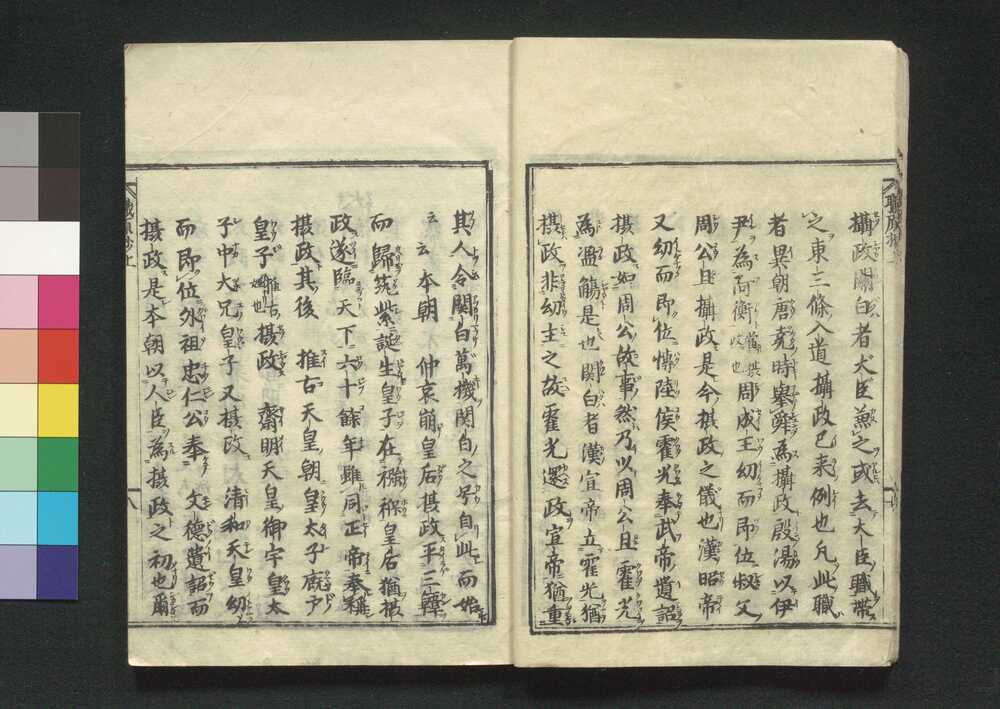 攝政關白者大臣兼之或去大臣職帶
之東三條入道攝政已来例也凡此職
者異朝唐堯時舉舜為攝政殷湯以伊
尹為阿衡周成王幼而即位叔父
周公旦攝政是今摂政之儀也漢昭帝
又幼而即位博陸侯霍光奉武帝遺詔
摂政如周公故事然乃以周公旦霍光
為濫觴是也関白者漢宣帝立霍光猶
摂政非幼主之故霍光還政宣帝猶重
其人令関白萬機関白之号自此而始
云云本朝 仲哀崩皇后摂政平三韓
而歸筑紫誕生皇子在襁褓皇后猶摂
政遂臨天下六十餘年雖同正帝奉稱
摂政其後 推古天皇朝皇太子廐戸
皇子推古姪也摂政 齋明天皇御宇皇太
子中大兄皇子又摂政 清和天皇幼
而即位外祖忠仁公奉 文德遺詔而
摂政是本朝以人臣為摂政之初也爾
職原抄上